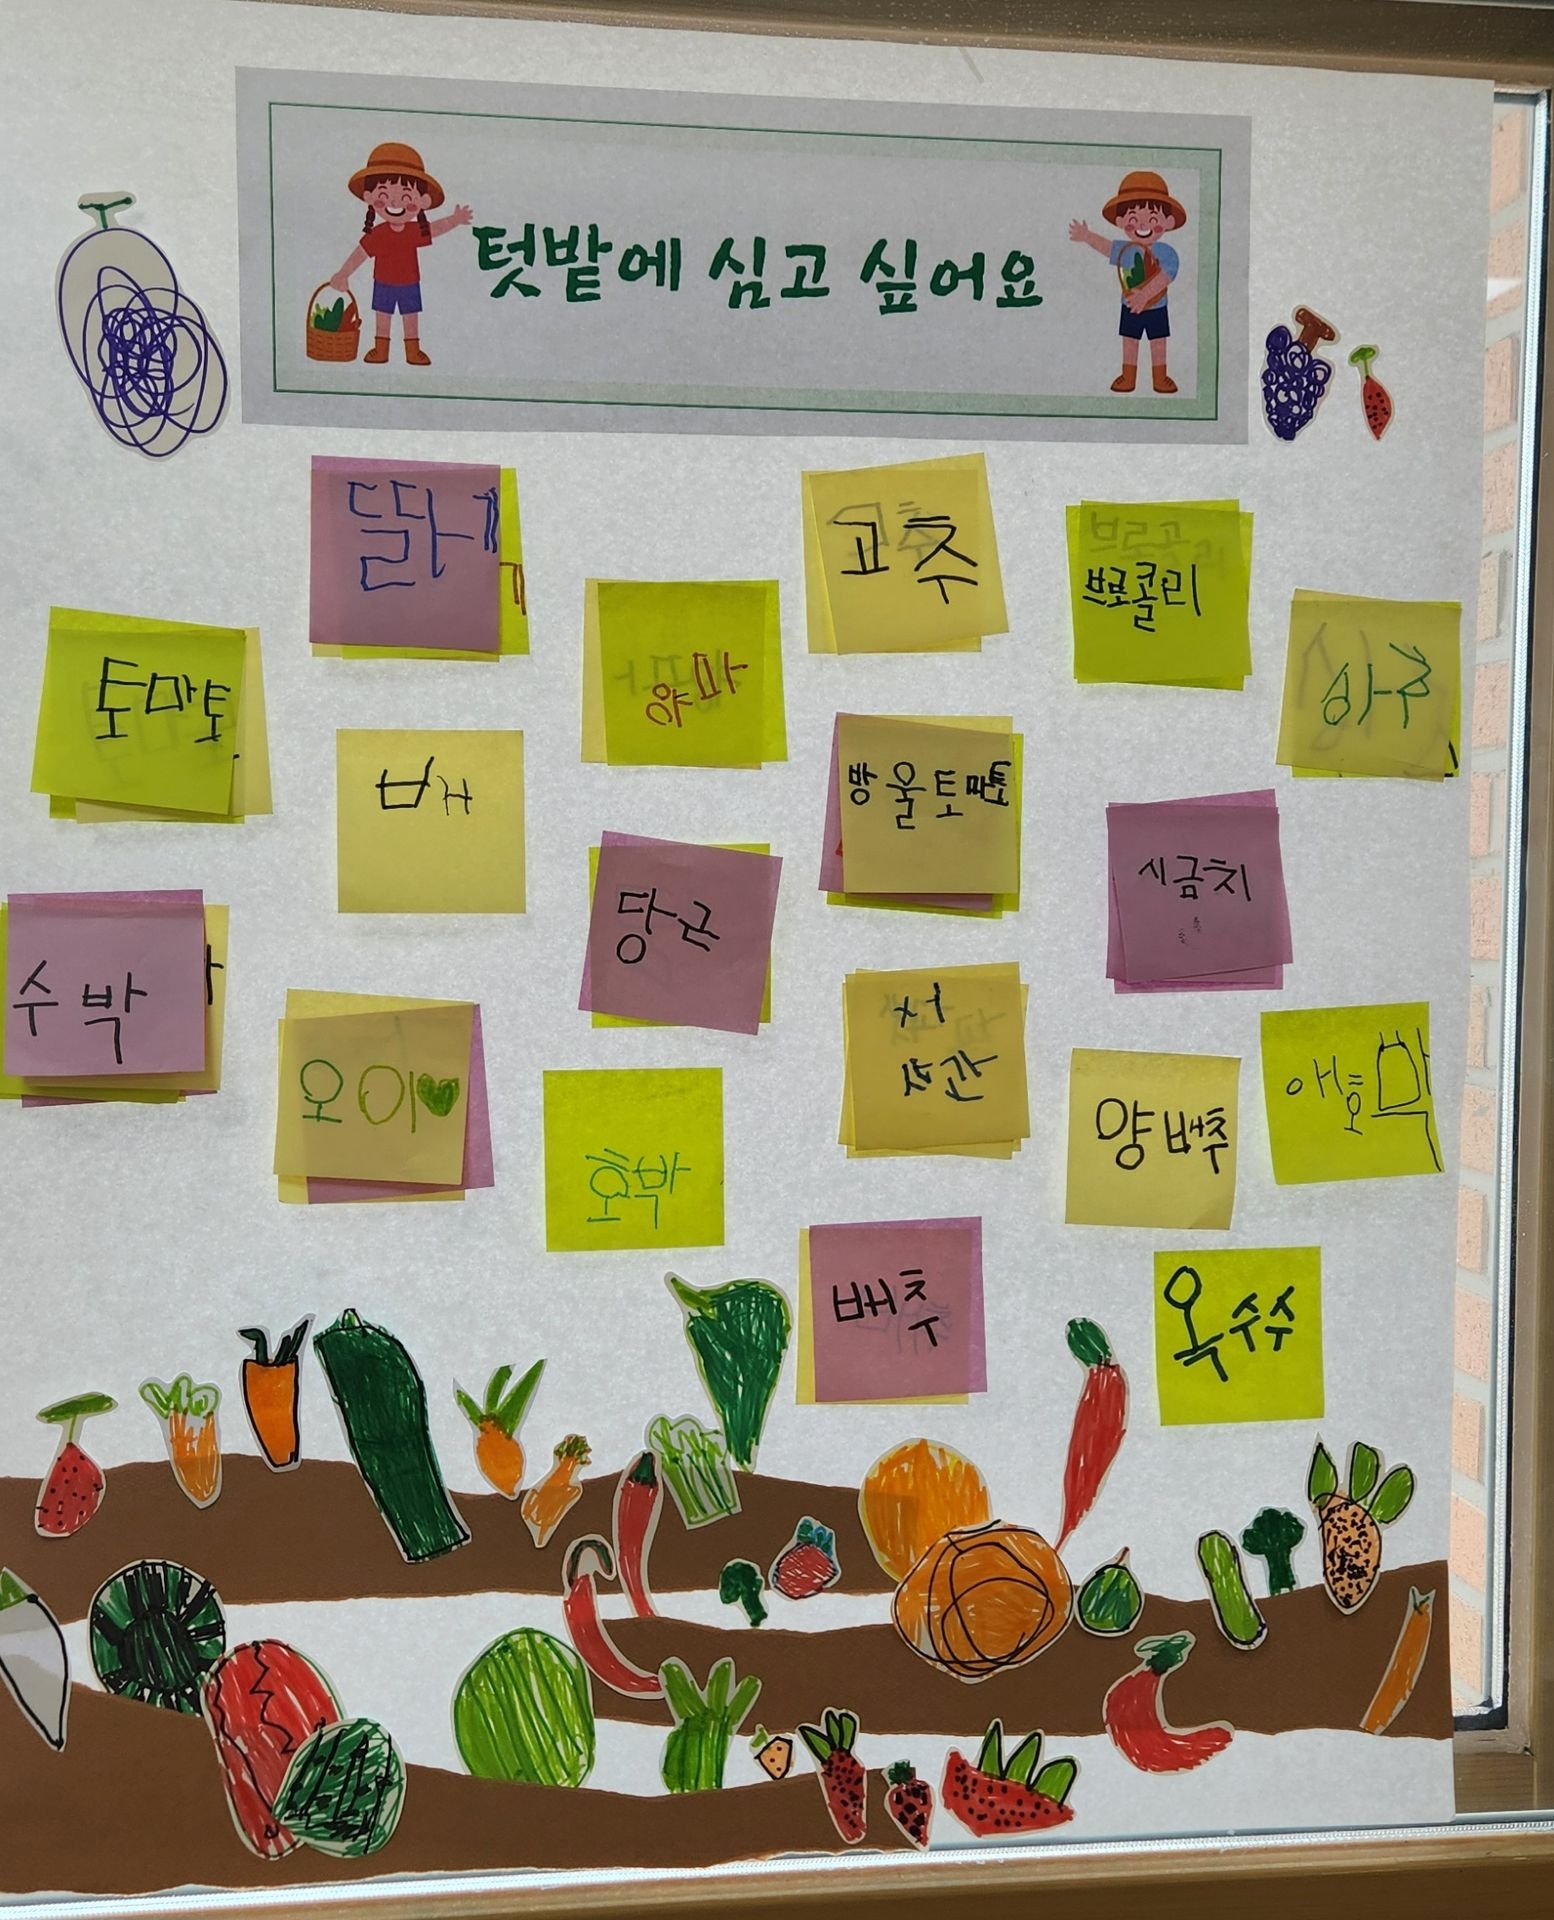 텃밭에 심고 싶어요
딹기
고추
브로콜리
양파
토마토
상추
배
방울토마토
시금치
당근
수박
오이
서
양배추
애호박
호박
배추
옥수수